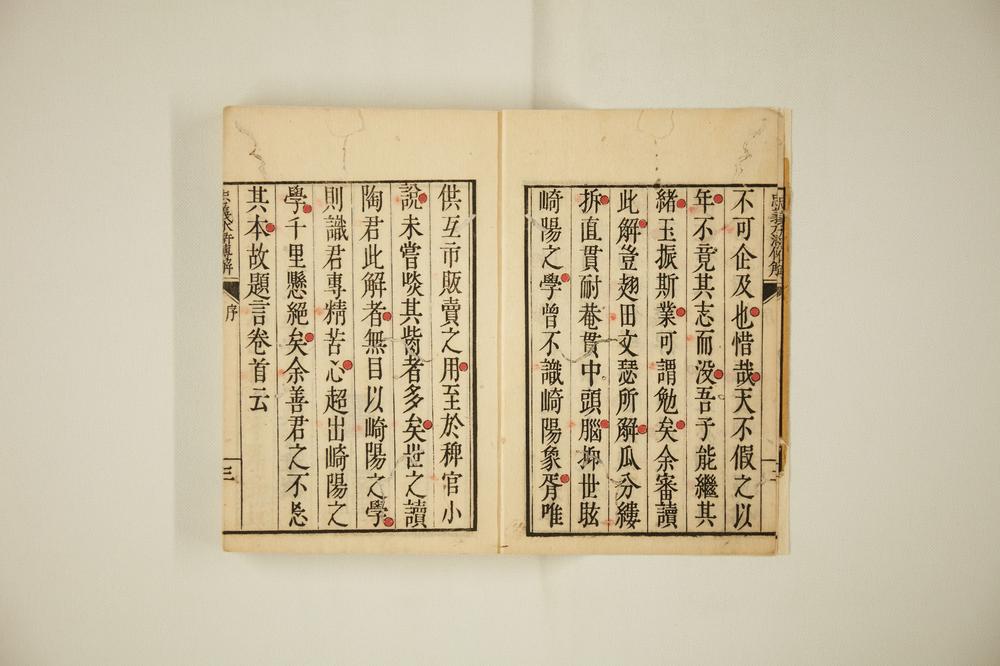 不可企及也惜哉天不假之以
年不竟其志而没吾子能繼其
緒玉振斯業可謂勉矣余審讀
此解豈翅田文瑟所解瓜分縷
拆直貫耐菴貫中頭腦抑世眩
崎陽之學曾不識崎陽象胥唯
供互市販賣之用至於稗官小
說未嘗啖其胾者多矣世之讀
陶君此解者無目以崎陽之學
則識君專精苦心超出崎陽之
學千里懸絕矣余善君之不忘
其本故題言卷首云
忠義水滸傳解
序
三